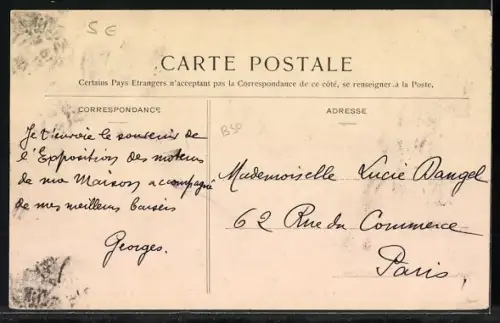 5 €
CARTE POSTALE
Certains Pays Etrangers n'acceptant pas la Correspondance de ce côté, se renseigner à la Poste.
CORRESPONDANCE
ADRESSE
B50
Je t'envoie le souvenir de
l'Exposition des moteurs
de ma Maison accompagné
de mes meilleurs baisers
Georges.
Mademoiselle Lucie Dangel
62 Rue du Commerce
Paris.